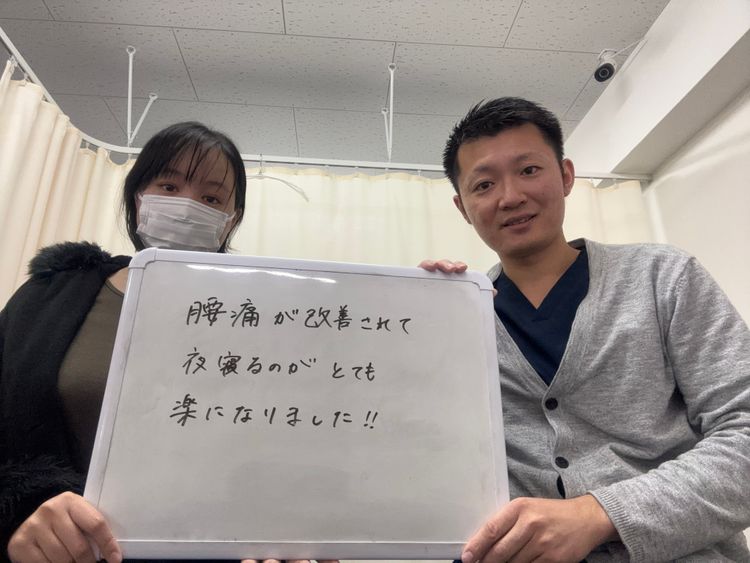 腰痛が改善されて
夜寝るのがとても
楽になりました!!